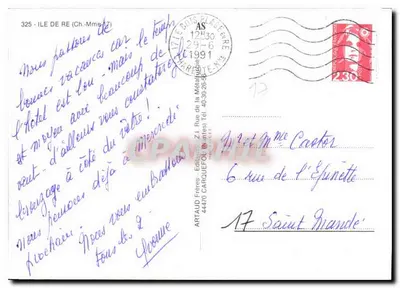 325 - ILE DE RE (Ch.-Mme
AS
12H30
29-6
1991
2,30
17
Nous passons de
bonnes vacances car
l'hôtel est bon - mais le temps
est moyen avec beaucoup de
vent - d'ailleurs vous constatez
bronzage à côté du vôtre !
Nous pensons déjà à mercredi
prochain. Nous vous embrassons
tous les 2
Yvonne
ARTAUD Frères, Editeurs - Z.I. Rue de la Métallurgie
44470 CARQUEFOU (Nantes) Tél. 40-30-26-
Mr et Mme Castor
6 rue de l'Épinette
17 Saint Mandé